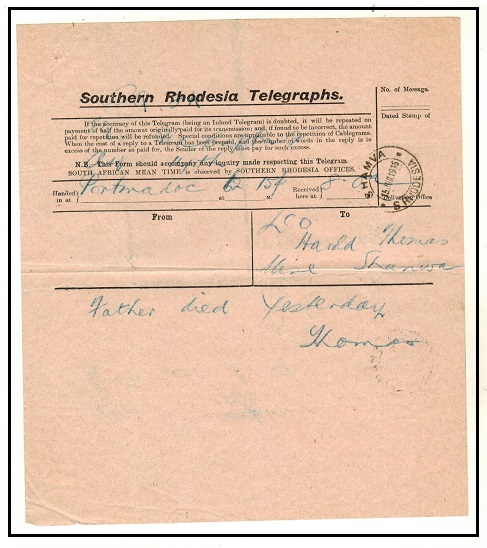 Southern Rhodesia Telegraphs.
No. of Message.
Dated Stamp of
If the accuracy of this Telegram (being an Inland Telegram) is doubted, it will be repeated on
payment of half the amount originally paid for its transmission; and, if found to be incorrect, the amount
paid for repetition will be refunded. Special conditions are applicable to the repetition of Cablegrams.
When the cost of a reply to a Telegram has been prepaid, and the number of words in the reply is in
excess of the number so paid for, the Sender of the reply must pay for such excess.
N.B. This Form should accompany any inquiry made respecting this Telegram.
SOUTH AFRICAN MEAN TIME is observed by SOUTHERN RHODESIA OFFICES.
SHAMVA
RHODESIA
Handed in at Portmadoc
at
M.
Received here at
Delivering Office
From
To
LCO
Harold Thomas
Mine Shamva
Father died yesterday
Thomas